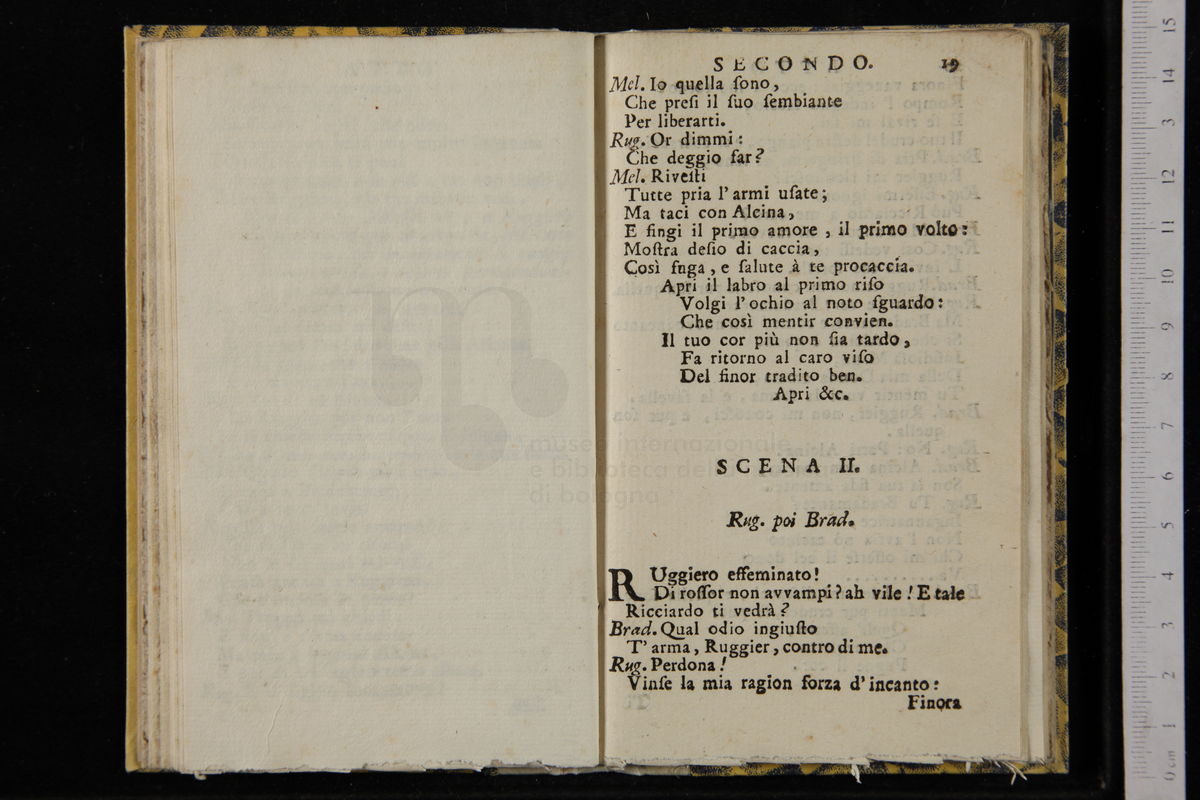 SECONDO. 19
Mel. Io quella ſono,
Che preſi il ſuo ſembiante
Per liberarti.
Rug. Or dimmi:
Che deggio far?
Mel. Riveſti
Tutte pria l'armi uſate;
Ma taci con Alcina,
E fingi il primo amore, il primo volto:
Moſtra deſio di caccia,
Così fnga, e ſalute à te procaccia.
Apri il labro al primo riſo
Volgi l'ochio al noto ſguardo:
Che così mentir convien.
Il tuo cor più non ſia tardo,
Fa ritorno al caro viſo
Del finor tradito ben.
Apri &c.
museo internazionale
e biblioteca della
di bologna
SCENA II.
Rug. poi Brad.
RUggiero effeminato!
Di roſſor non avvampi? ah vile! E tale
Ricciardo ti vedrà?
Brad. Qual odio ingiuſto
T'arma, Ruggier, contro di me.
Rug. Perdona!
Vinſe la mia ragion forza d'incanto:
Finora
15
14
13
12
11
10
9
8
7
6
5
4
3
2
1
0 cm